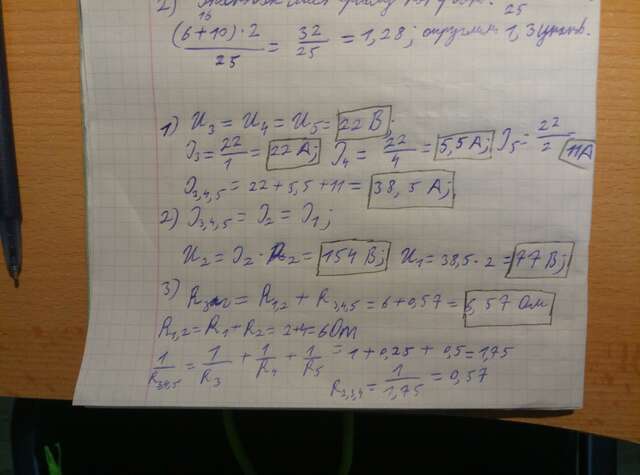 2)
16 25
(6+10)·2 / 25 = 32/25 = 1,28; округлим 1,3
1) U3 = U4 = U5 = 22 В;
I3 = 22/1 = 22 А; I4 = 22/4 = 5,5 А; I5 = 22/2 11А
I3,4,5 = 22 + 5,5 + 11 = 38,5 А;
2) I3,4,5 = I2 = I1;
U2 = I2 · R2 = 154 В; U1 = 38,5 · 2 = 77 В;
3) Rэкв = R1,2 + R3,4,5 = 6 + 0,57 = 6,57 Ом
R1,2 = R1 + R2 = 2+4 = 6 Ом
1/R3,4,5 = 1/R3 + 1/R4 + 1/R5 = 1 + 0,25 + 0,5 = 1,75
R2,3,4 = 1/1,75 = 0,57